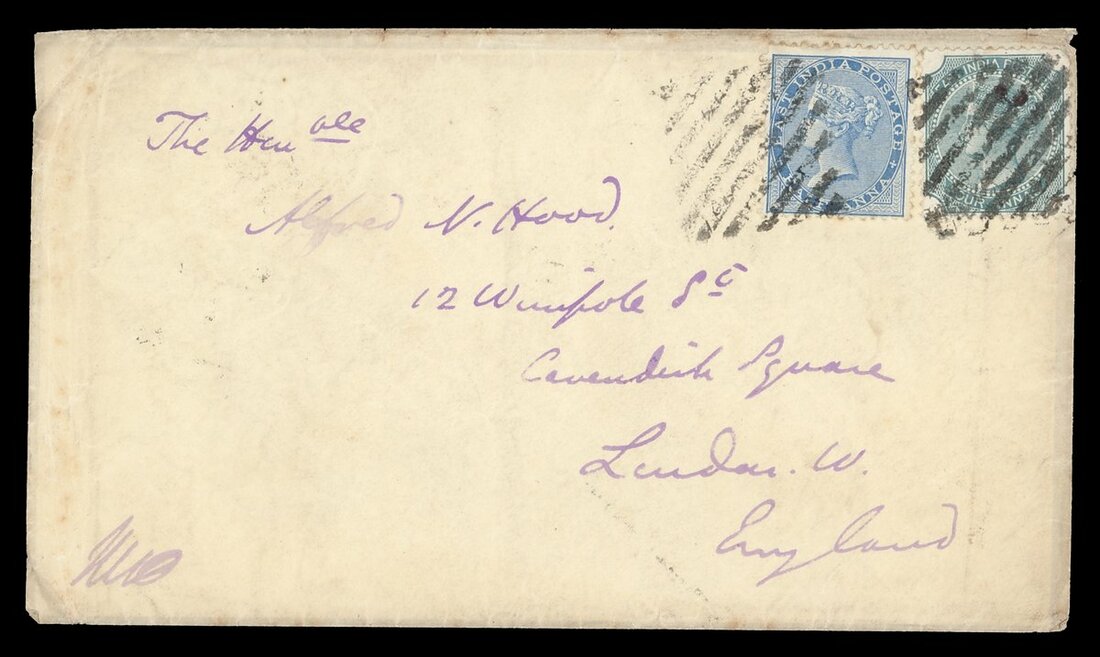 EAST INDIA POSTAGE
HALF ANNA
EAST INDIA POSTAGE
FOUR ANNAS
The Honble
Alfred N. Hood.
12 Wimpole St
Cavendish Square
London. W.
England